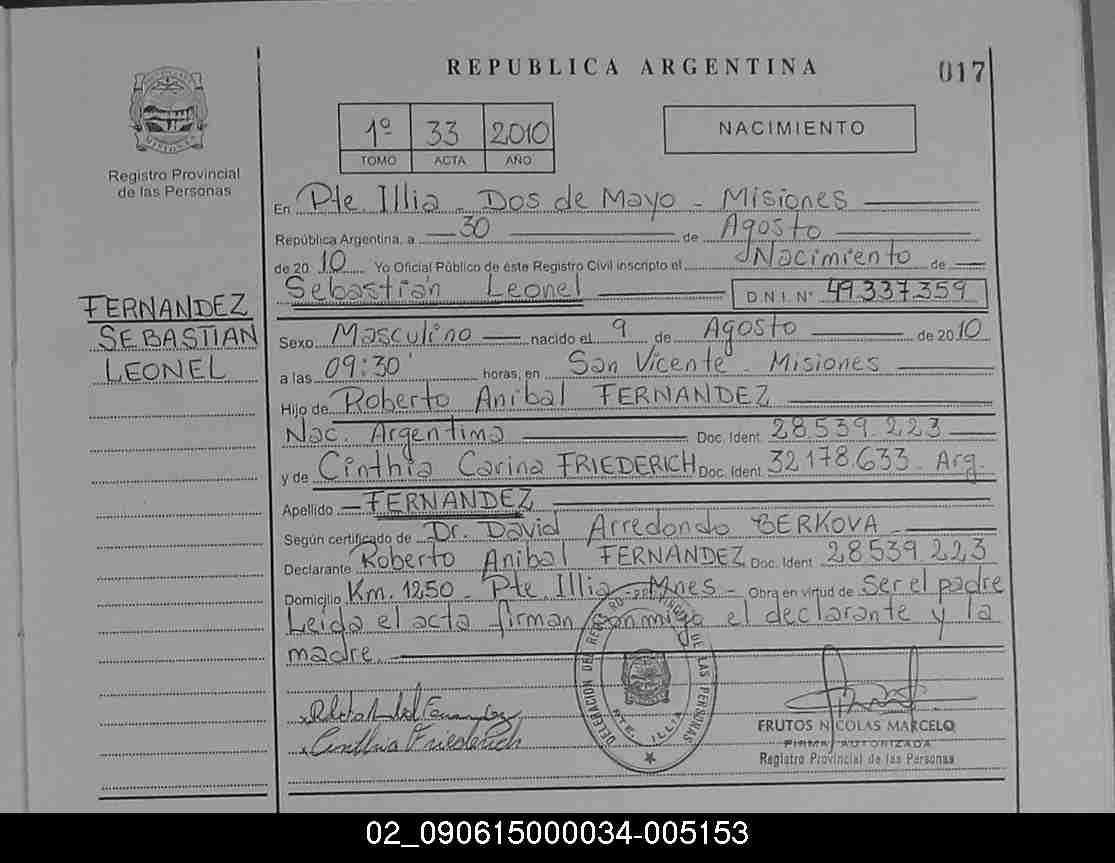 REPUBLICA ARGENTINA
017
MISIONES
Registro Provincial
de las Personas
1º 33 2010
TOMO ACTA AÑO
NACIMIENTO
En Pte. Illia - Dos de Mayo - Misiones
República Argentina, a 30 de Agosto
de 2010 Yo Oficial Público de éste Registro Civil inscripto el Nacimiento de
Sebastián Leonel D N I. Nº 49.337.359
FERNANDEZ
SEBASTIAN
LEONEL
Sexo Masculino nacido el 9 de Agosto de 2010
a las 09:30' horas, en San Vicente - Misiones
Hijo de Roberto Anibal FERNANDEZ
Nac. Argentina Doc. Ident. 28.539.223
y de Cinthia Carina FRIEDERICH Doc. Ident. 32.178.633. Arg.
Apellido FERNANDEZ
Según certificado de Dr. David Arredondo BERKOVA
Declarante Roberto Anibal FERNANDEZ Doc. Ident. 28539.223
Domicilio Km. 1250 - Pte. Illia - Mnes - Obra en virtud de Ser el padre
Leida el acta firman conmigo el declarante y la
madre.
DELEGACION DEL REGISTRO PROVINCIAL DE LAS PERSONAS
PTE. ILLIA
Cinthia Friederich
FRUTOS NICOLAS MARCELO
FIRMA AUTORIZADA
Registro Provincial de las Personas
02_090615000034-005153